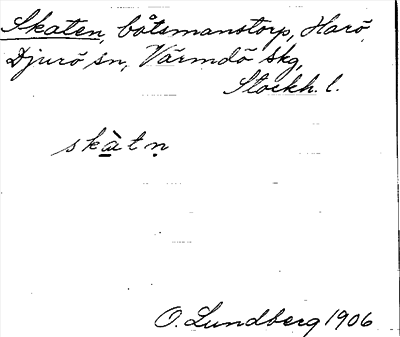 Skaten, båtsmanstorp, Harö
Djurö sn, Värmdö skg,
Stockh. l.
skàtṇ
O. Lundberg 1906